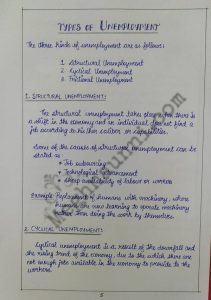 TYPES OF UNEMPLOYMENT
The three kinds of unemployment are as follows:
1. Structural Unemployment
2. Cyclical Unemployment
3. Frictional Unemployment
1. STRUCTURAL UNEMPLOYMENT:
The structural unemployment takes place when there is
a shift in the economy and an individual does not find a
job according to his/her caliber or capabilities.
Some of the causes of structural unemployment can be
stated as
Job outsourcing
Technological Advancement
Cheap availability of labour or workers
Example: Replacement of humans with machinery, where
humans are now learning to operate machinery
rather than doing the work by themselves.
2. CYCLICAL UNEMPLOYMENT:
Cyclical unemployment is a result of the downfall and
the rising trend of the economy, due to the which there are
not enough jobs available in the economy to provide to the
workers.
5